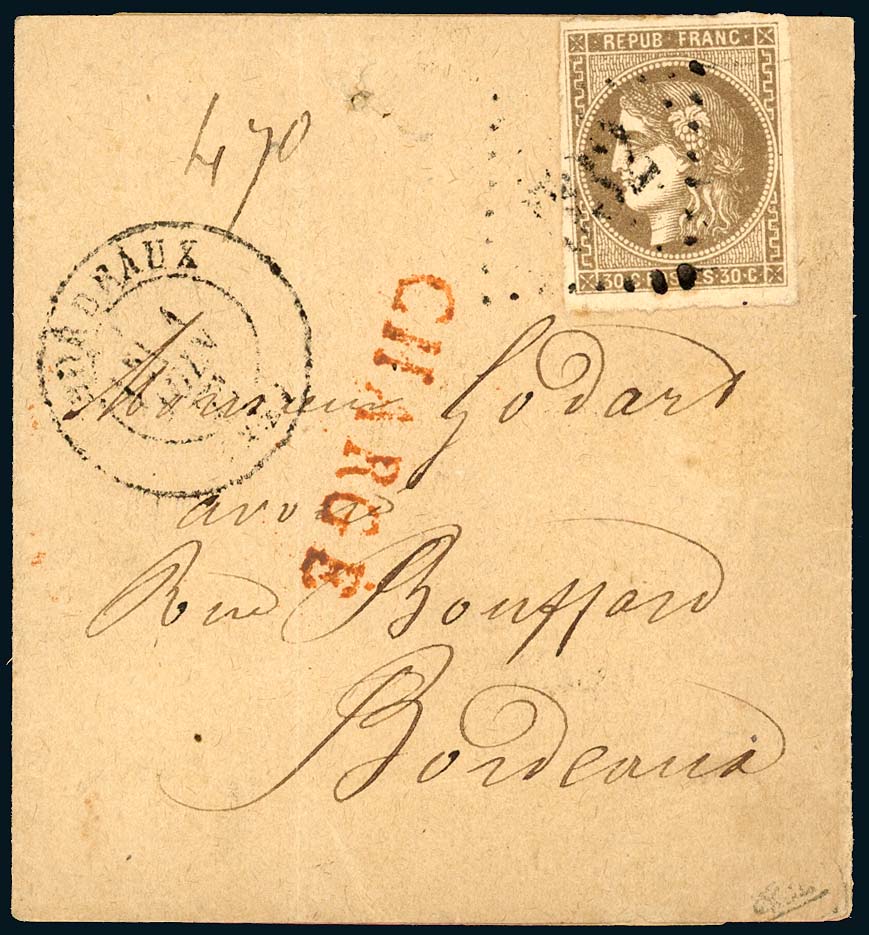 REPUB · FRANC ·
30 · C
30 · C
470
BORDEAUX
JUIN
CHARGÉ
Monsieur Godart
avoué
Rue Bouffard
Bordeaux